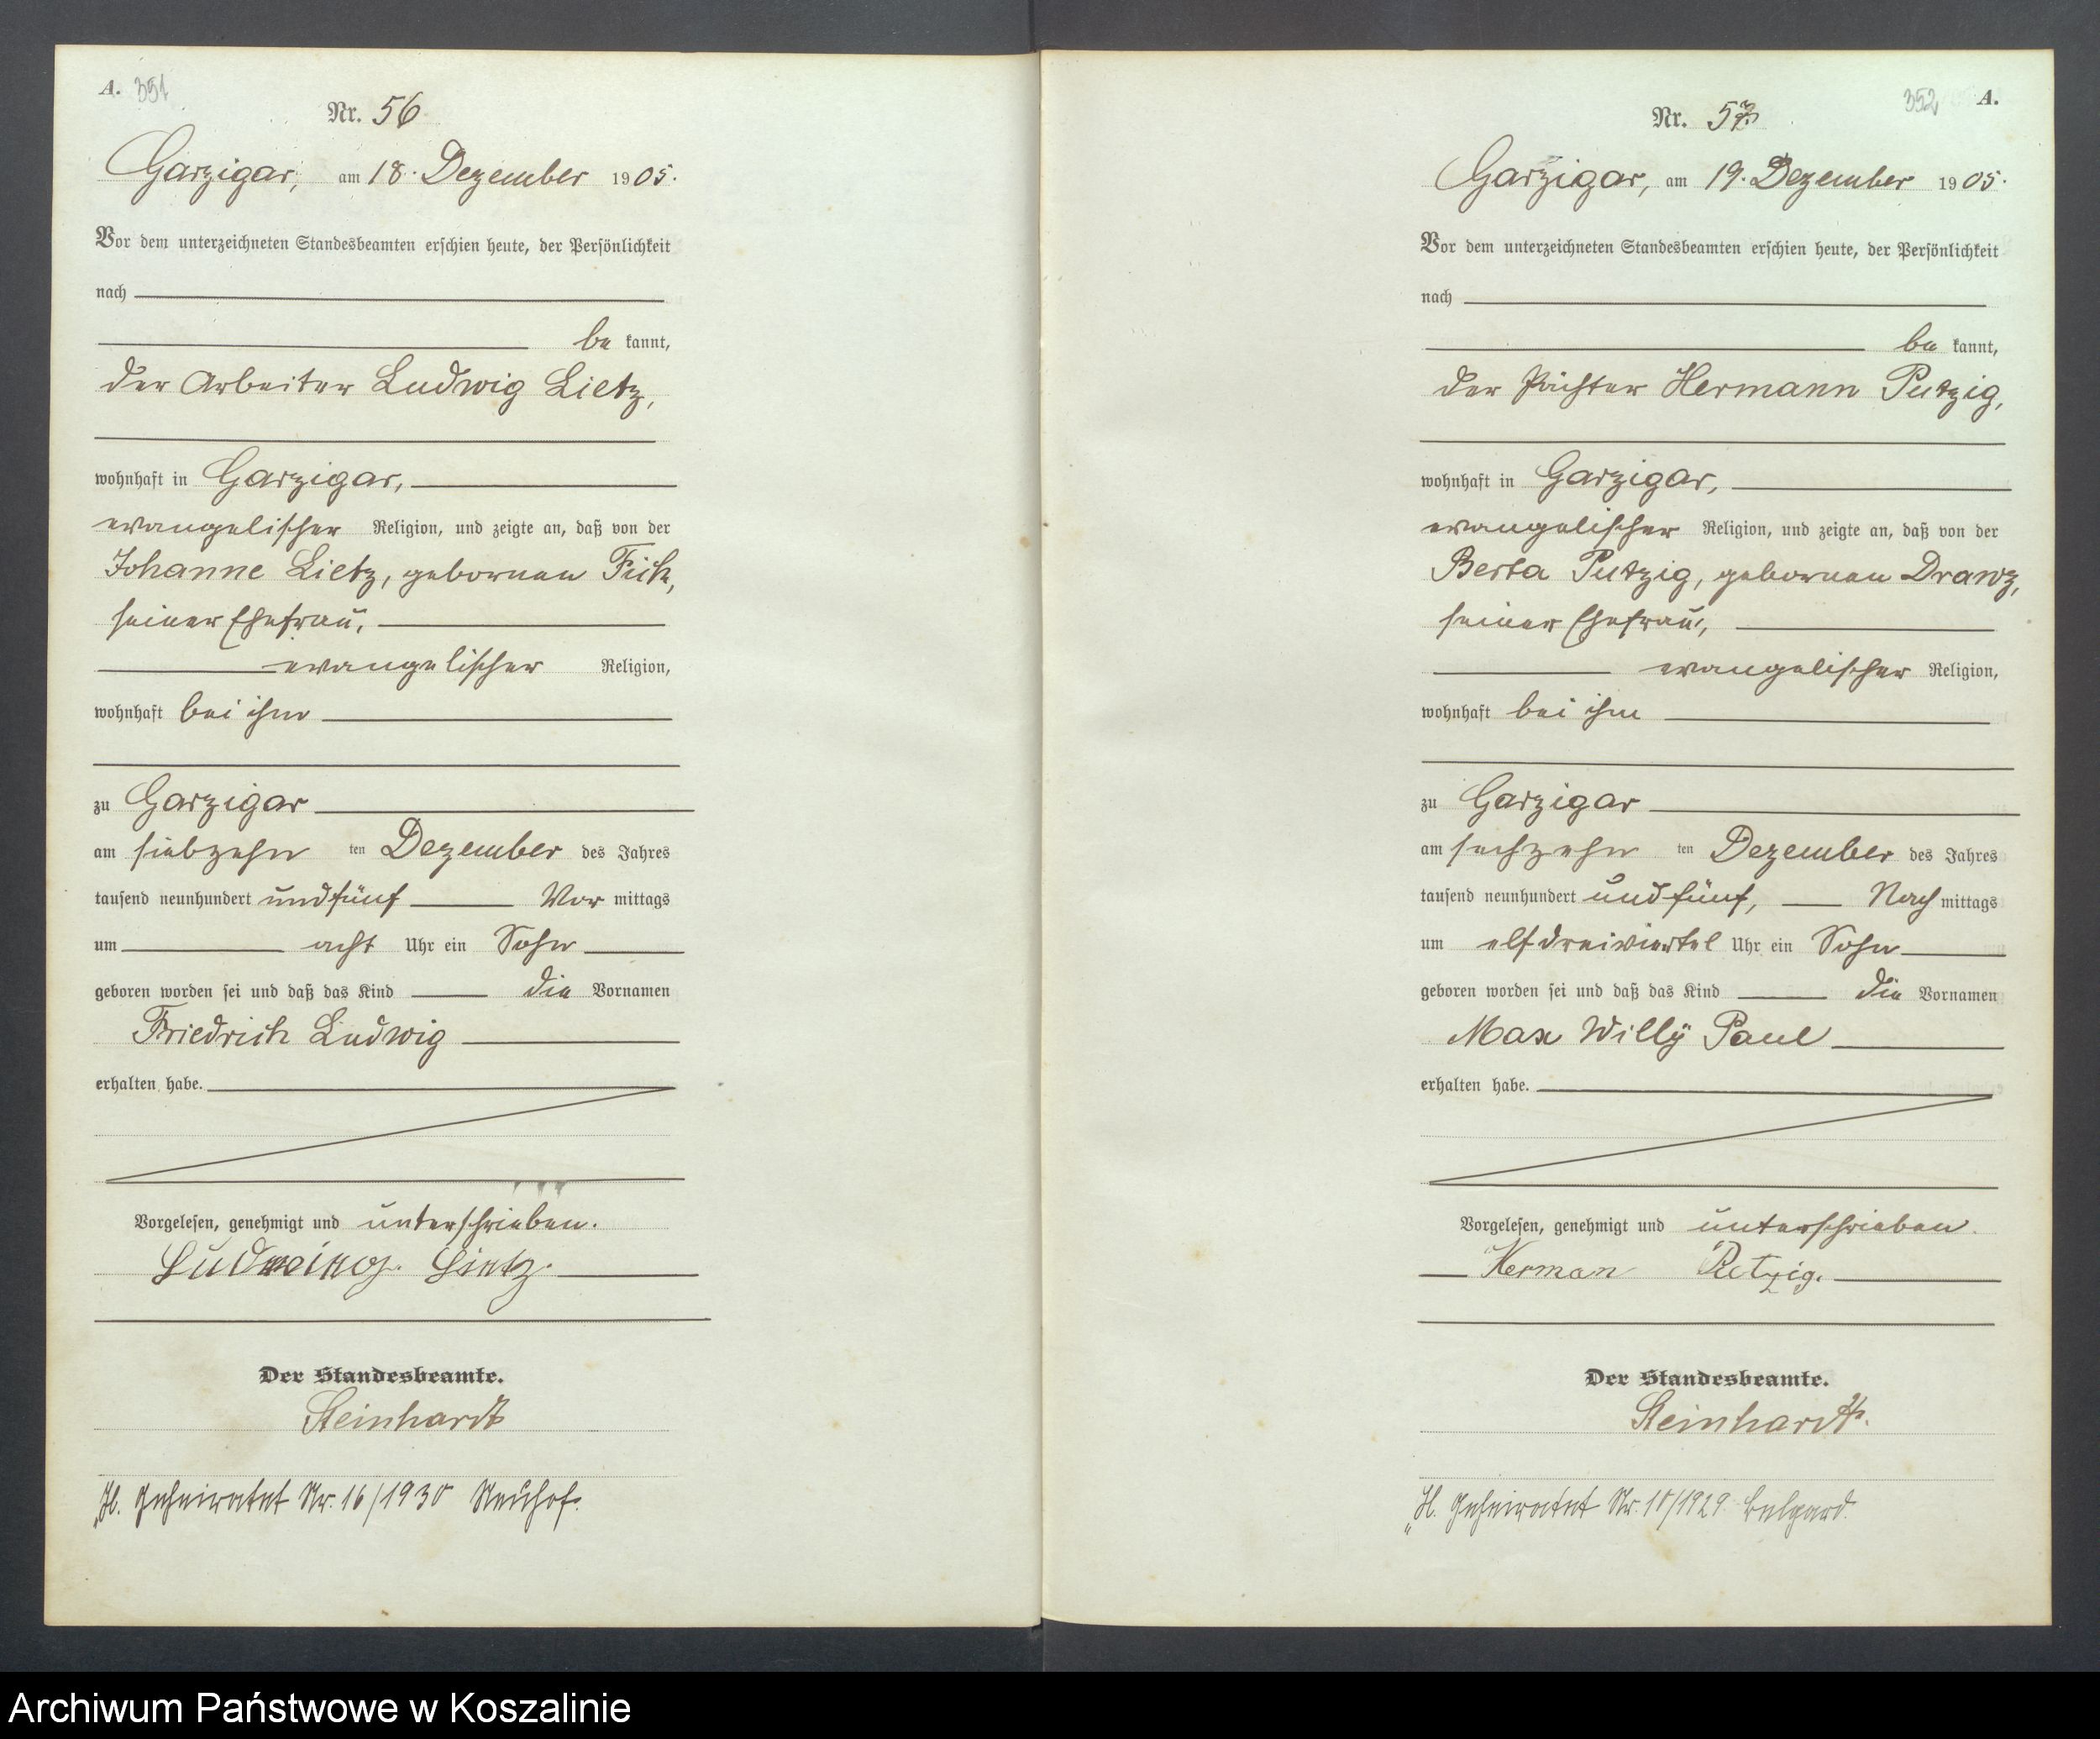 A. 351
Nr. 56
Garzigar, am 18. Dezember 1905.
Vor dem unterzeichneten Standesbeamten erschien heute, der Persönlichkeit
nach
be kannt,
der Arbeiter Ludwig Lietz,
wohnhaft in Garzigar,
evangelischer Religion, und zeigte an, daß von der
Johanne Lietz, gebornen Fick,
seiner Ehefrau,
evangelischer Religion,
wohnhaft bei ihm
zu Garzigar
am siebzehn ten Dezember des Jahres
tausend neunhundert undfünf Vor mittags
um acht Uhr ein Sohn
geboren worden sei und daß das Kind die Vornamen
Friedrich Ludwig
erhalten habe.
Vorgelesen, genehmigt und unterschrieben.
Ludwig Lietz.
Der Standesbeamte.
Steinhardt
H. Geheiratet Nr. 16/1930 Neuhof.
352 A.
Nr. 57
Garzigar, am 19. Dezember 1905.
Vor dem unterzeichneten Standesbeamten erschien heute, der Persönlichkeit
nach
be kannt,
der Pächter Hermann Putzig,
wohnhaft in Garzigar,
evangelischer Religion, und zeigte an, daß von der
Berta Putzig, gebornen Drawz,
seiner Ehefrau,
evangelischer Religion,
wohnhaft bei ihm
zu Garzigar
am sechzehn ten Dezember des Jahres
tausend neunhundert und fünf, Nach mittags
um elf dreiviertel Uhr ein Sohn
geboren worden sei und daß das Kind die Vornamen
Max Willy Paul
erhalten habe.
Vorgelesen, genehmigt und unterschrieben.
Herman
Der Standesbeamte.
Steinhardt.
H. Geheiratet Nr. /1929 Belgard.
Archiwum Państwowe w Koszalinie